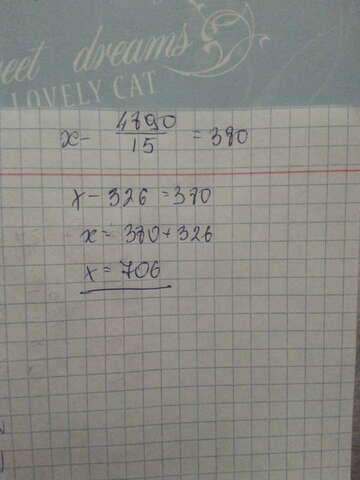 eet dreams
LOVELY CAT
x - 4890/15 = 380
x - 326 = 380
x = 380 + 326
x = 706